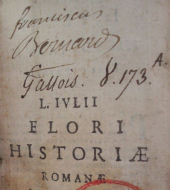 franciscus
Bernard
Gallois. 8.173. A.
L. IVLII
FLORI
HISTORIÆ
ROMANÆ